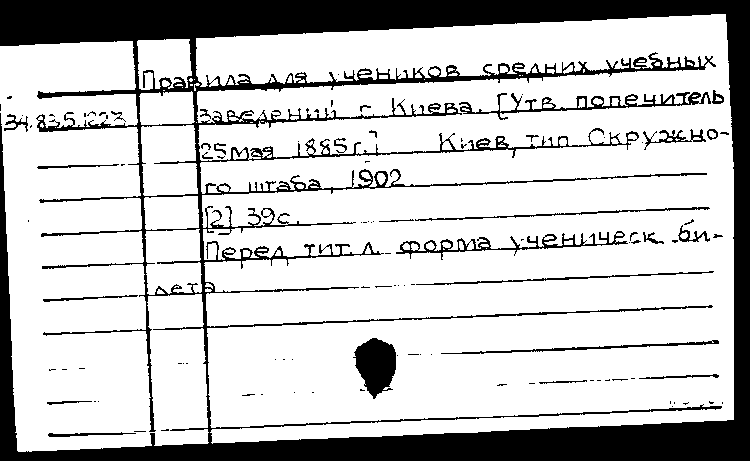 Правила для учеников средних учебных
34.83.5.1223 заведений г. Киева. [Утв. попечитель
25 мая 1885 г.] Киев, тип Окружно-
го штаба, 1902.
[2], 39с.
Перед тит. л. форма ученическ. би-
лета